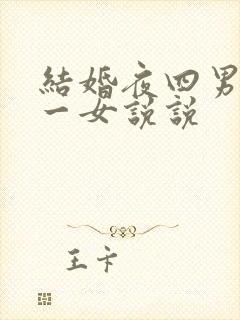 結婚夜四男
一女說說
王卡